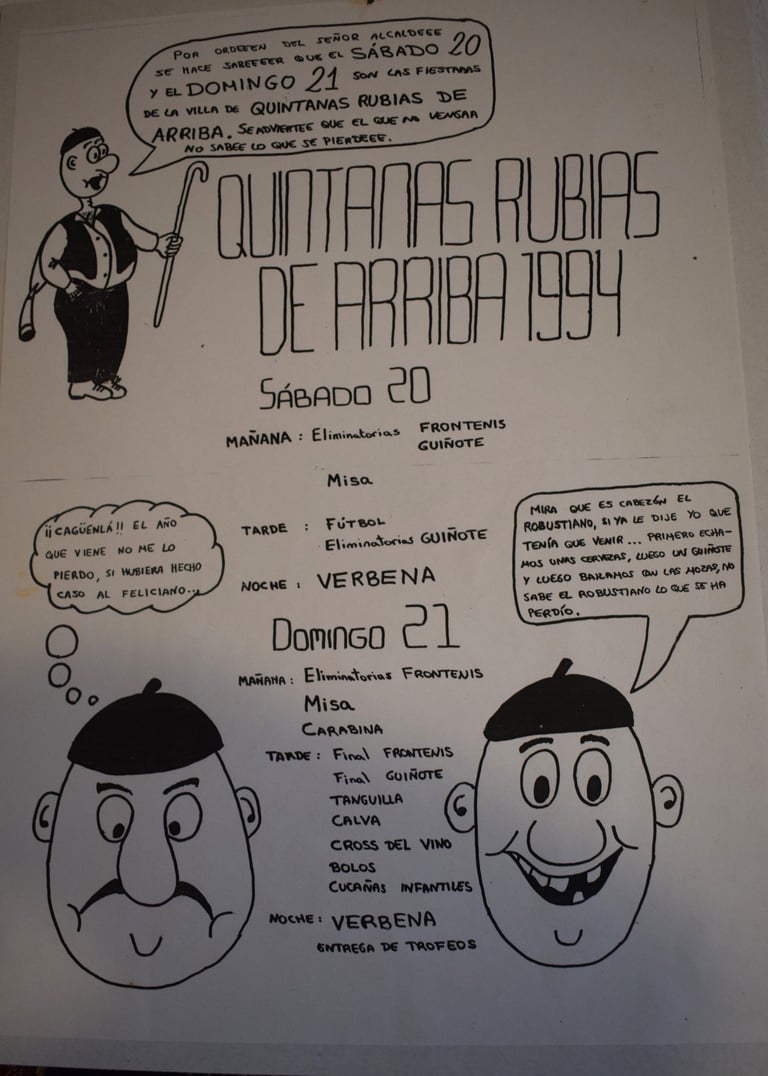 POR ORDEEEN DEL SEÑOR ALCALDEEE
SE HACE SABEEEER QUE EL SÁBADO 20
Y EL DOMINGO 21 SON LAS FIESTAAAS
DE LA VILLA DE QUINTANAS RUBIAS DE
ARRIBA. SE ADVIERTEE QUE EL QUE NO VENGAA
NO SABEE LO QUE SE PIERDEEE.
QUINTANAS RUBIAS
DE ARRIBA 1994
SÁBADO 20
MAÑANA : Eliminatorias FRONTENIS
GUIÑOTE
Misa
TARDE : FÚTBOL
Eliminatorias GUIÑOTE
NOCHE : VERBENA
¡¡CAGÜENLÁ!! EL AÑO
QUE VIENE NO ME LO
PIERDO, SI HUBIERA HECHO
CASO AL FELICIANO...
MIRA QUE ES CABEZÓN EL
ROBUSTIANO, SI YA LE DIJE YO QUE
TENÍA QUE VENIR... PRIMERO ECHA-
MOS UNAS CERVEZAS, LUEGO UN GUIÑOTE
Y LUEGO BAILAMOS CON LAS MOZAS, NO
SABE EL ROBUSTIANO LO QUE SE HA
PERDÍO.
DOMINGO 21
MAÑANA : Eliminatorias FRONTENIS
Misa
CARABINA
TARDE : Final FRONTENIS
Final GUIÑOTE
TANGUILLA
CALVA
CROSS DEL VINO
BOLOS
CUCAÑAS INFANTILES
NOCHE : VERBENA
ENTREGA DE TROFEOS